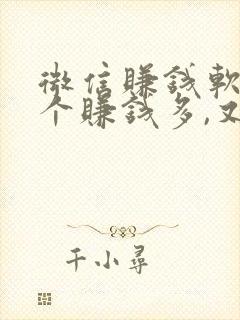 微信赚钱软
个赚钱多,又
千小寻